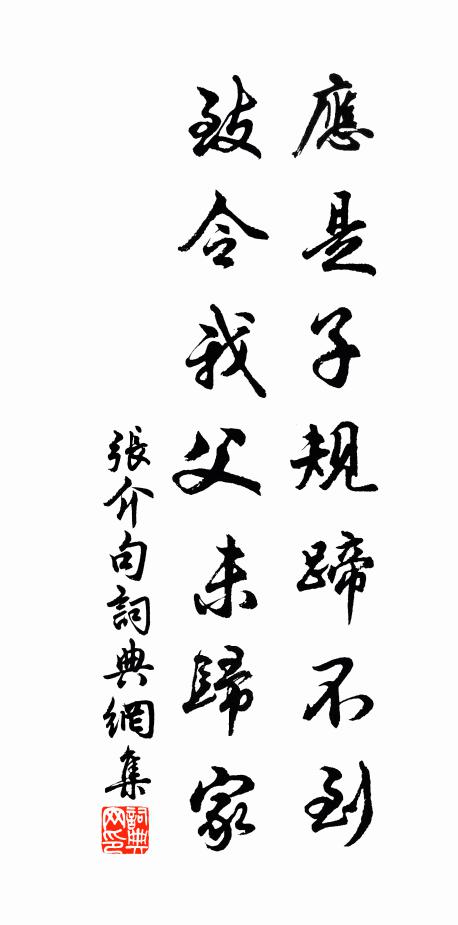 應是子規蹄不到
致令我父未歸家
張介句詞典網集
詞典网印